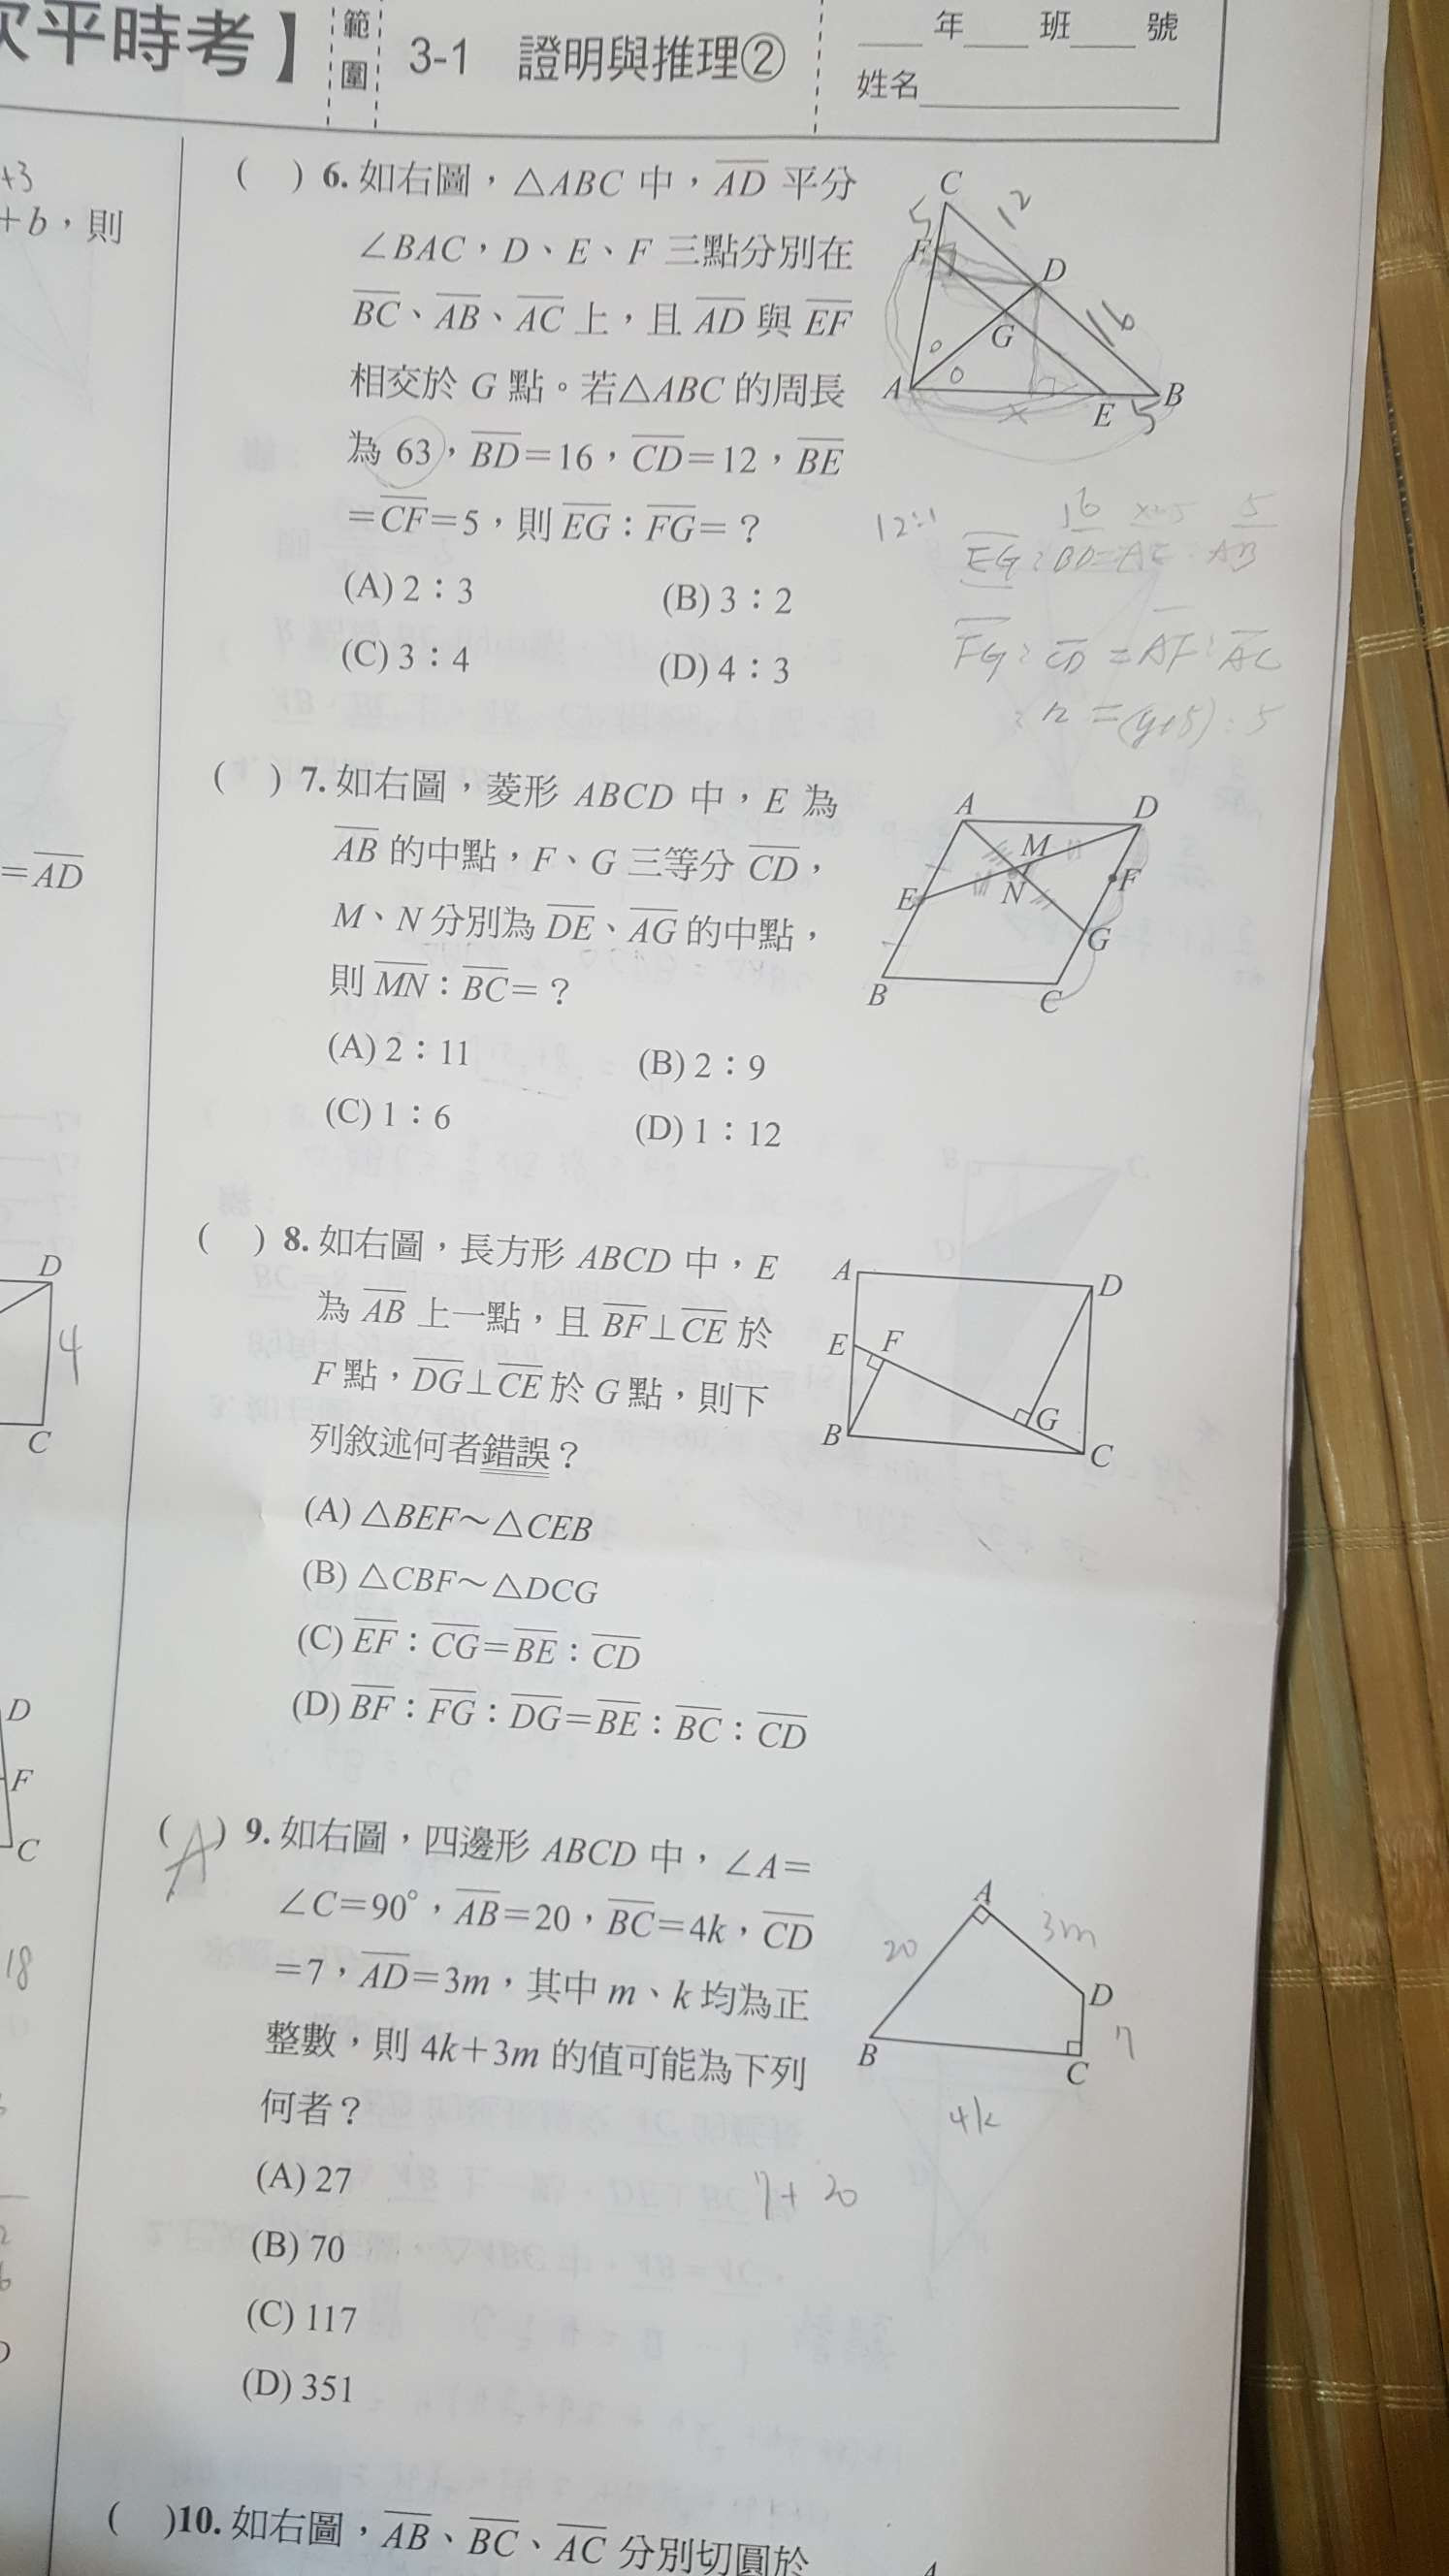 次平時考】
範圍
3-1 證明與推理②
年 班 號
姓名
+3
+b，則
=AD
D
4
C
D
F
C
18
( ) 6. 如右圖，△ABC 中，AD 平分
∠BAC，D、E、F 三點分別在
BC、AB、AC 上，且 AD 與 EF
相交於 G 點。若△ABC 的周長
為 63，BD=16，CD=12，BE
=CF=5，則 EG：FG=？
(A) 2：3 (B) 3：2
(C) 3：4 (D) 4：3
C
5
12
F
D
G
16
A
x
E
5
B
12:1
16 x+5 5
EG:BD=AE:AB
FG:CD=AF:AC
:12=(y+5):5
( ) 7. 如右圖，菱形 ABCD 中，E 為
AB 的中點，F、G 三等分 CD，
M、N 分別為 DE、AG 的中點，
則 MN：BC=？
(A) 2：11 (B) 2：9
(C) 1：6 (D) 1：12
A D
M
E N F
G
B C
( ) 8. 如右圖，長方形 ABCD 中，E
為 AB 上一點，且 BF⊥CE 於
F 點，DG⊥CE 於 G 點，則下
列敘述何者錯誤？
(A) △BEF~△CEB
(B) △CBF~△DCG
(C) EF：CG=BE：CD
(D) BF：FG：DG=BE：BC：CD
A D
E F
G
B C
(A) 9. 如右圖，四邊形 ABCD 中，∠A=
∠C=90°，AB=20，BC=4k，CD
=7，AD=3m，其中 m、k 均為正
整數，則 4k+3m 的值可能為下列
何者？
(A) 27
(B) 70
(C) 117
(D) 351
A
20 3m
D
7
B C
4k
7+20
( )10. 如右圖，AB、BC、AC 分別切圓於
A